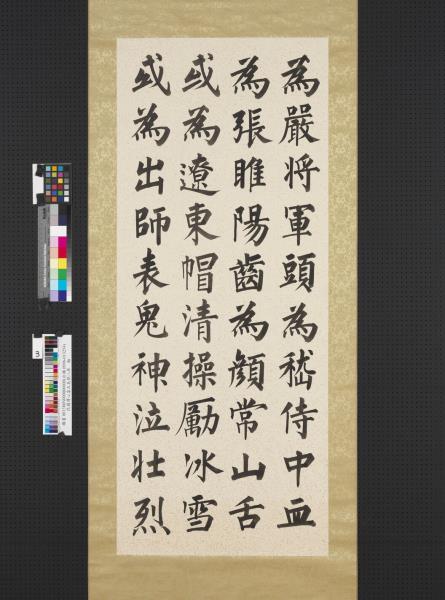 為嚴将軍頭為嵇侍中血
為張睢陽齒為顔常山舌
或為遼東帽清操厲冰雪
或為出師表鬼神泣壮烈